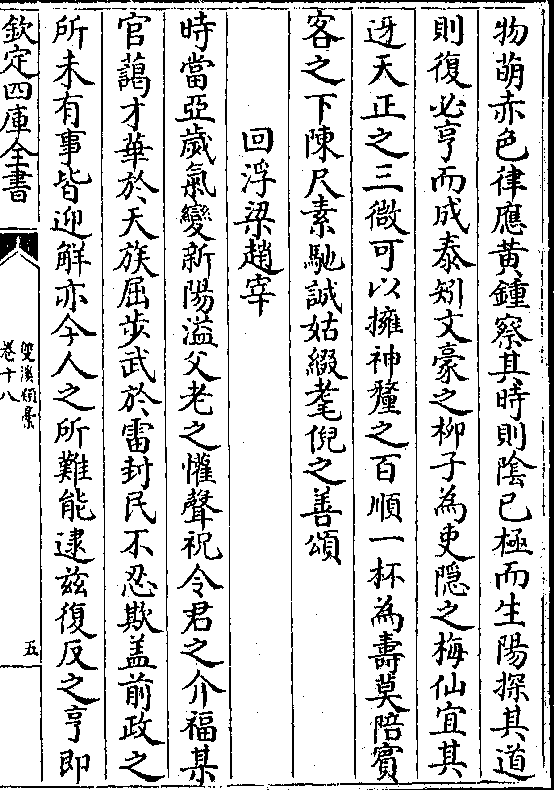 物萌赤色律應黃鍾察其時則陰已極而生陽探其道
則復必亨而成泰矧文豪之柳子為吏隱之梅仙宜其
迓天正之三微可以擁神釐之百順一杯為壽莫陪賓
客之下陳尺素馳誠姑綴耄倪之善頌
回浮梁趙宰
時當亞歲氣變新陽溢父老之懽聲祝令君之介福某
官藹才華於天族屈步武於雷封民不忍欺盖前政之
所未有事皆迎解亦今人之所難能逮兹復反之亨即
欽定四庫全書
雙溪類藁
卷十八
五